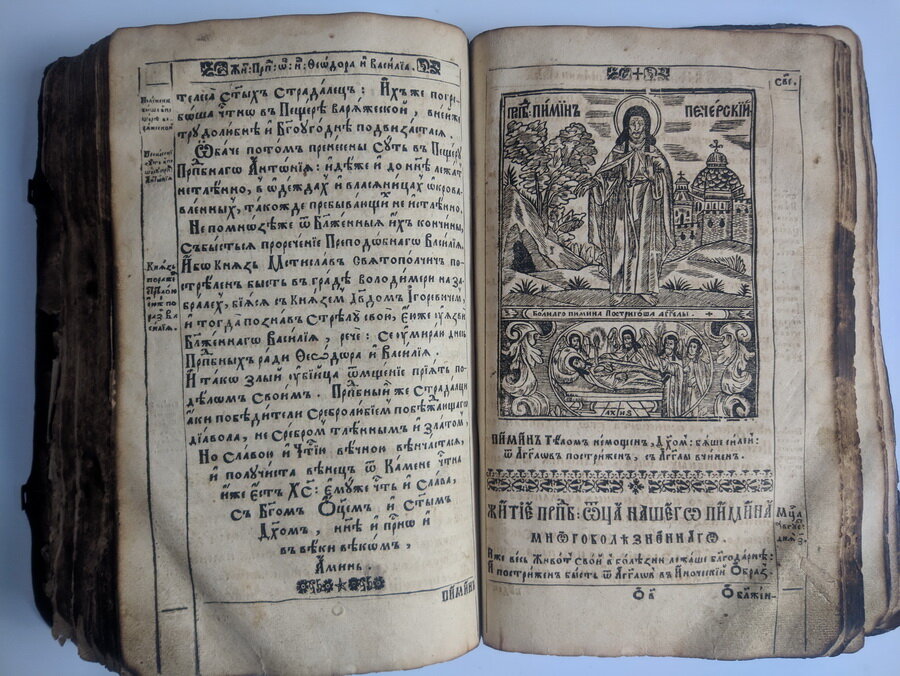 Жи́: Прⷣп: ѡ҃: н҃: Ѳеѡ́дора и҆ Васи́лїа.
телеса̀ Ст҃ы́хъ Страда́лецъ: И҆́хъ же погре-
бо́ша че́тнѡ въ Пеще́рѣ варѧ́жской, в неи́же
трꙋдолю́бнѣ и҆ Бг҃оꙋго́днѣ подвиза́стасѧ.
Ѻ҆ба́че пото́мъ пренесе́ны сꙋ́ть въ Пеще́рꙋ
Прⷣпбнагѡ А҆нто́нїа: и҆дѣ́же и҆ до ны́нѣ лежа́тъ
нетлѣ́ннѡ, в ѻ҆де́ждахъ и҆ власѧни́цахъ ѡ҆крова́-
вленныхъ, та́кожде пребыва́ющи нетлѣ́ннѡ.
Не помно́зѣже ѿ Бл҃же́нныѧ и҆́хъ кончи́ны,
събы́стьсѧ проречє́нїе Преподо́бнагѡ Васи́лїа.
И҆́бо кнѧ́зь Мстисла́въ Свѧтопо́лчичъ по-
стрѣ́ленъ бы́сть въ гра́дѣ Володи́мери на за-
бра́лехъ, бїѧ́сѧ съ Кнѧ́земъ Дв҃домъ І҆́горевичемъ,
и҆ тогда̀ позна́въ стрѣлꙋ̀ свою̀, е҆́юже ꙋ҆ѧзвѝ
Бл҃же́ннаго Васи́лїа, речѐ: Се ꙋ҆мира́ю дне́сь
Прⷣпбныхъ ра́ди Ѳео́дѡра и҆ Васи́лїа.
И҆ та́кѡ злы́й ᲂу҆бі́йца ѿмще́нїе прїѧ́тъ по
дѣлѡ́мъ свои́мъ. Прⷣпбныи же Страда́лци
а҆́ки побѣди́тели сребролю́бїемъ побѣжа́ющаго
дїа́вола, не сребро́мъ тлѣ́ннымъ и҆ зла́томъ,
Но сла́вою и҆ че́стїю вѣ́чною вѣнча́стасѧ,
и҆ полꙋчи́ста вѣне́цъ ѿ Ка́мене че́тна
и҆́же е҆́сть Хс҃: Е҆мꙋ́же че́ть и҆ Сла́ва,
съ Бг҃омъ Ѻ҆ц҃емъ, и҆ Ст҃ы́мъ
Дх҃омъ, ны́нѣ и҆ при́снѡ и҆
въ вѣ́ки вѣкѡ́мъ,
А҆ми́нь.
Пи́минъ
Кнѧ́зь
Све́.
прⷣпб: пи́минъ пече́рскїй
Болна́го пи́мина Постриго́ша а҆́гг҃елы.
АХИД
пи́минъ тѣ́ломъ не́мощенъ, Дх҃омъ: бѧ́ше си́лній:
ѿ А҆́гг҃лѡвъ постри́женъ, съ А҆́гг҃лы вчине́нъ.
житїѐ прⷣпб: ѻ҆ц҃а̀ на́шегѡ пи́мина
многоболѣ́зненнагѡ.
И҆́же ве́сь живо́тъ сво́й в боле́зни лежа́ше бл҃года́рнѣ:
И҆ постри́женъ бы́сть ѿ А҆́гг҃лѡвъ въ И҆́ноческїй О҆́браз.
Ѻв Ѻ҆блажи́-